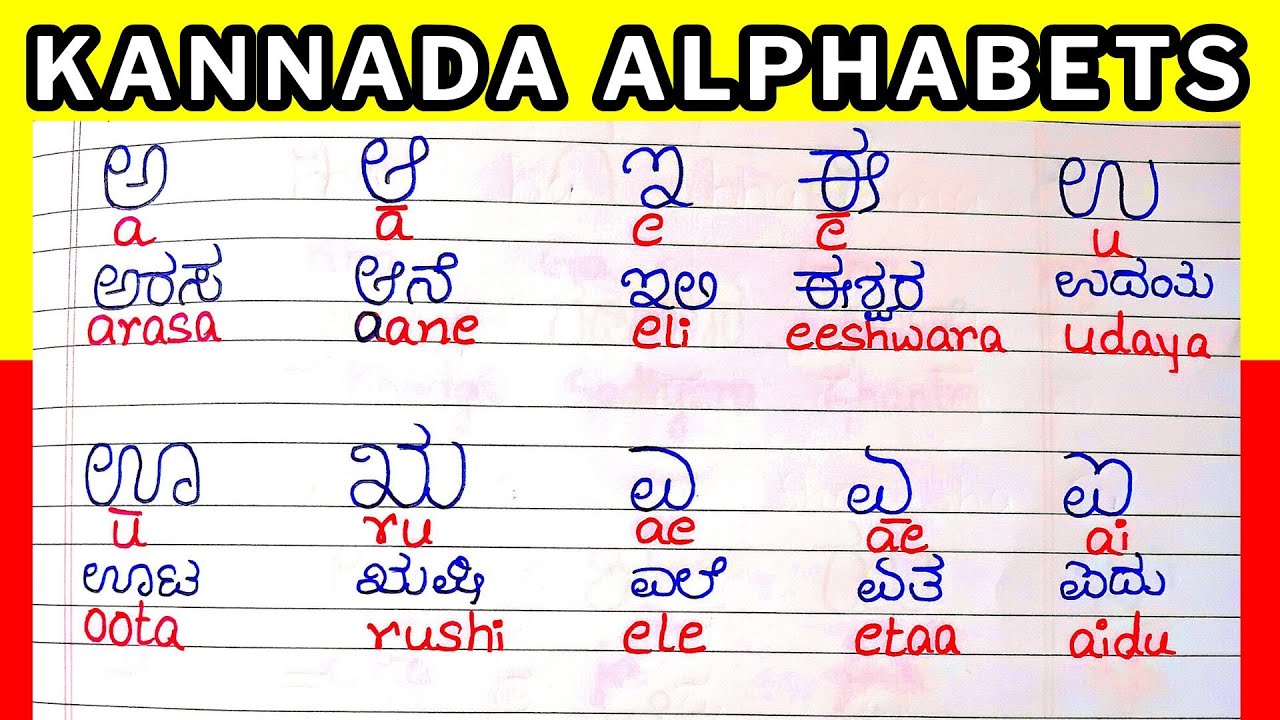 KANNADA ALPHABETS
ಅ ಆ ಇ ಈ ಉ
a ā e ē u
ಅರಸ ಆನೆ ಇಲಿ ಈಶ್ವರ ಉದಯ
arasa aane eli eeshwara udaya
ಊ ಋ ಎ ಏ ಐ
ū ru ae āe ai
ಊಟ ಋಷಿ ಎಲೆ ಏತ ಐದು
oota rushi ele etaa aidu